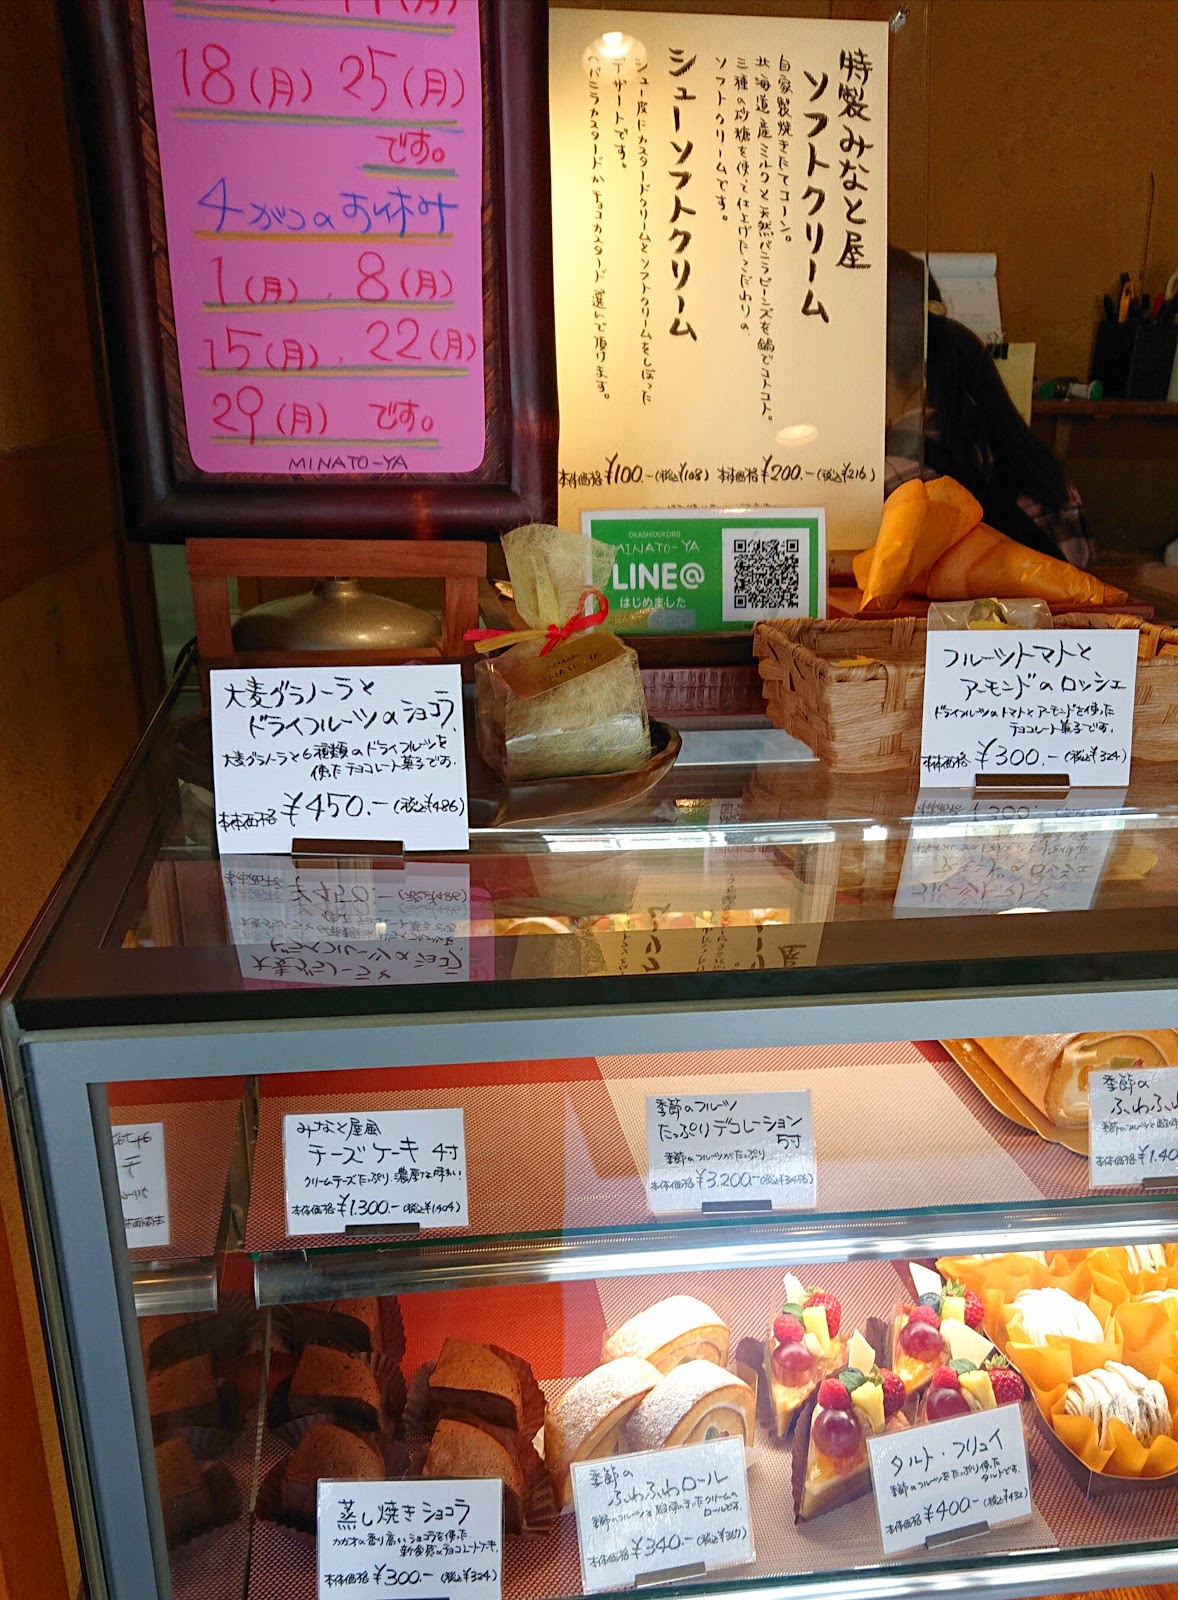 18(月) 25(月)
です。
4がつのお休み
1(月)、8(月)
15(月)、22(月)
29(月) です。
MINATO-YA
特製みなと屋
ソフトクリーム
自家製焼きたてコーン。
北海道産ミルクと天然バニラビーンズを鍋でコトコト。
三種の砂糖を使って仕上げたこだわりの
ソフトクリームです。
シューソフトクリーム
シュー皮にカスタードクリームとソフトクリームをしぼった
デザートです。
(バニラカスタードかチョコカスタード選んで頂けます。
本体価格¥100.-(税込¥108) 本体価格¥200.-(税込¥216)
OKASHIDOKORO
MINATO-YA
LINE@
はじめました
大麦グラノーラと
ドライフルーツのショコラ
大麦グラノーラと6種類のドライフルーツを
使たチョコレート菓子です。
本体価格¥450.-(税込¥486)
フルーツトマトと
アーモンドのロッシェ
ドライフルーツのトマトとアーモンドを使った
チョコレート菓子です。
本体価格¥300.-(税込¥324)
みなと屋風
チーズケーキ 4寸
クリームチーズたっぷり、濃厚な味わい
本体価格¥1.300.-(税込¥1.404)
季節のフルーツ
たっぷりデコレーション
5寸
季節のフルーツがたっぷり
本体価格¥3,200.-(税込¥3456)
季節の
ふわふわ
本体価格¥1.40
蒸し焼きショコラ
カカオの香り高いショコラを使った
新食感のチョコレートケーキ
本体価格¥300.-(税込¥324)
季節の
ふわふわロール
本体価格¥340.-(税込¥367)
タルト・フリュイ
季節のフルーツをたっぷり使た
タルトです。
本体価格¥400.-(税込¥432)